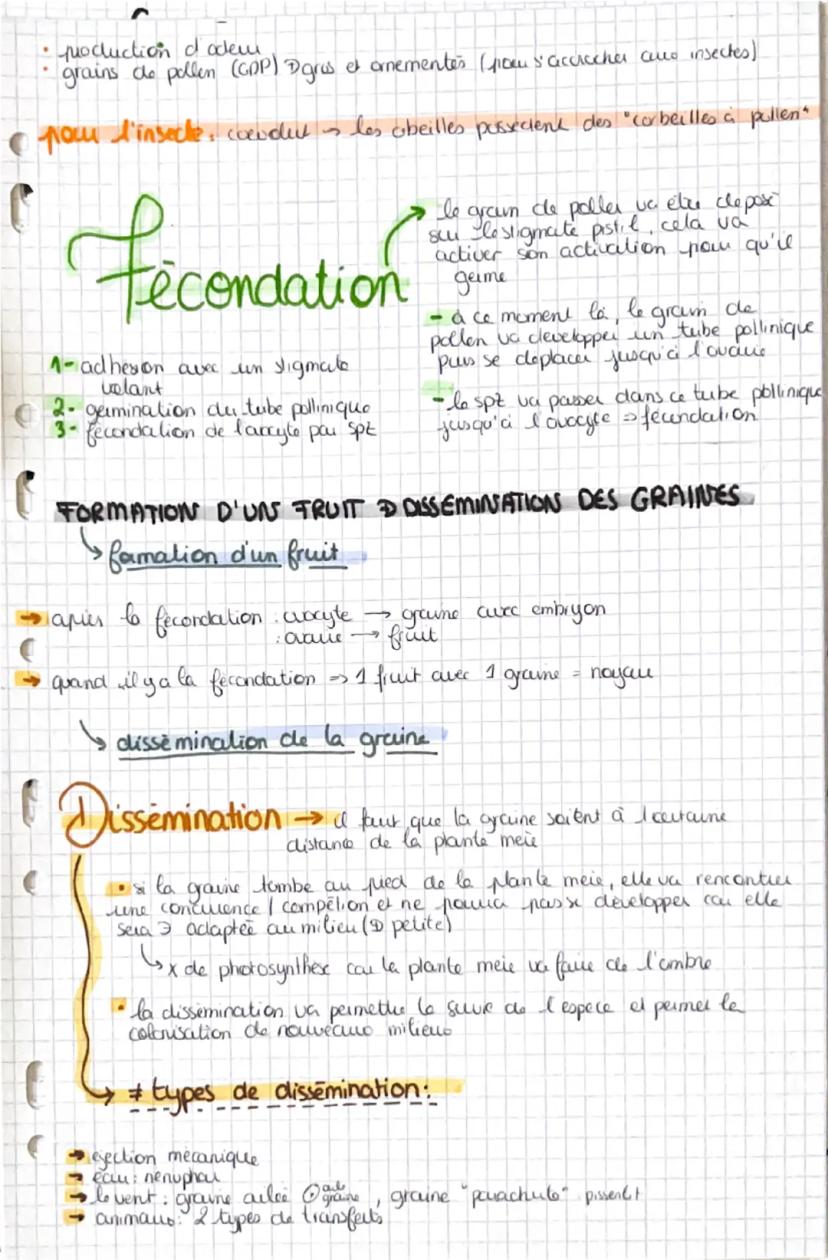 • production d'odeur
• grains de pollen (GDP) ⊕ gros et ornementés (pour s'accrocher aux insectes)
pour l'insecte: coévolut° → les abeilles possèdent des "corbeilles à pollen"
Fécondation
→ le grain de pollen va être déposé
sur le stigmate pistil, cela va
activer son activation pour qu'il
germe
- à ce moment là, le grain de
pollen va développer un tube pollinique
puis se déplacer jusqu'à l'ovaire
- le spz va passer dans ce tube pollinique
jusqu'à l'ovocyte ⇒ fécondation
1- adhésion avec un stigmate
volant
2- germination du tube pollinique
3- fécondation de l'ovocyte par spz
FORMATION D'UN FRUIT ⊕ DISSÉMINATION DES GRAINES
↳ formation d'un fruit
→ après la fécondation : ovocyte → graine avec embryon
: ovaire → fruit
→ quand il y a la fécondation ⇒ 1 fruit avec 1 graine = noyau
↳ dissémination de la graine
Dissémination → il faut que la graine soient à 1 certaine
distance de la plante mère
• si la graine tombe au pied de la plante mère, elle va rencontrer
une concurence / compétion et ne pourra pas se développer car elle
sera adaptée au milieu (⊕ petite)
↳ x de photosynthèse car la plante mère va faire de l'ombre
• la dissémination va permettre la survie de l'espèce et permet la
colonisation de nouveaux milieux
↳ ≠ types de dissémination:
→ éjection mécanique
→ eau : nénuphar
→ le vent : graine ailée aile graine, graine "parachute" pissenlit
→ animaux: 2 types de transferts